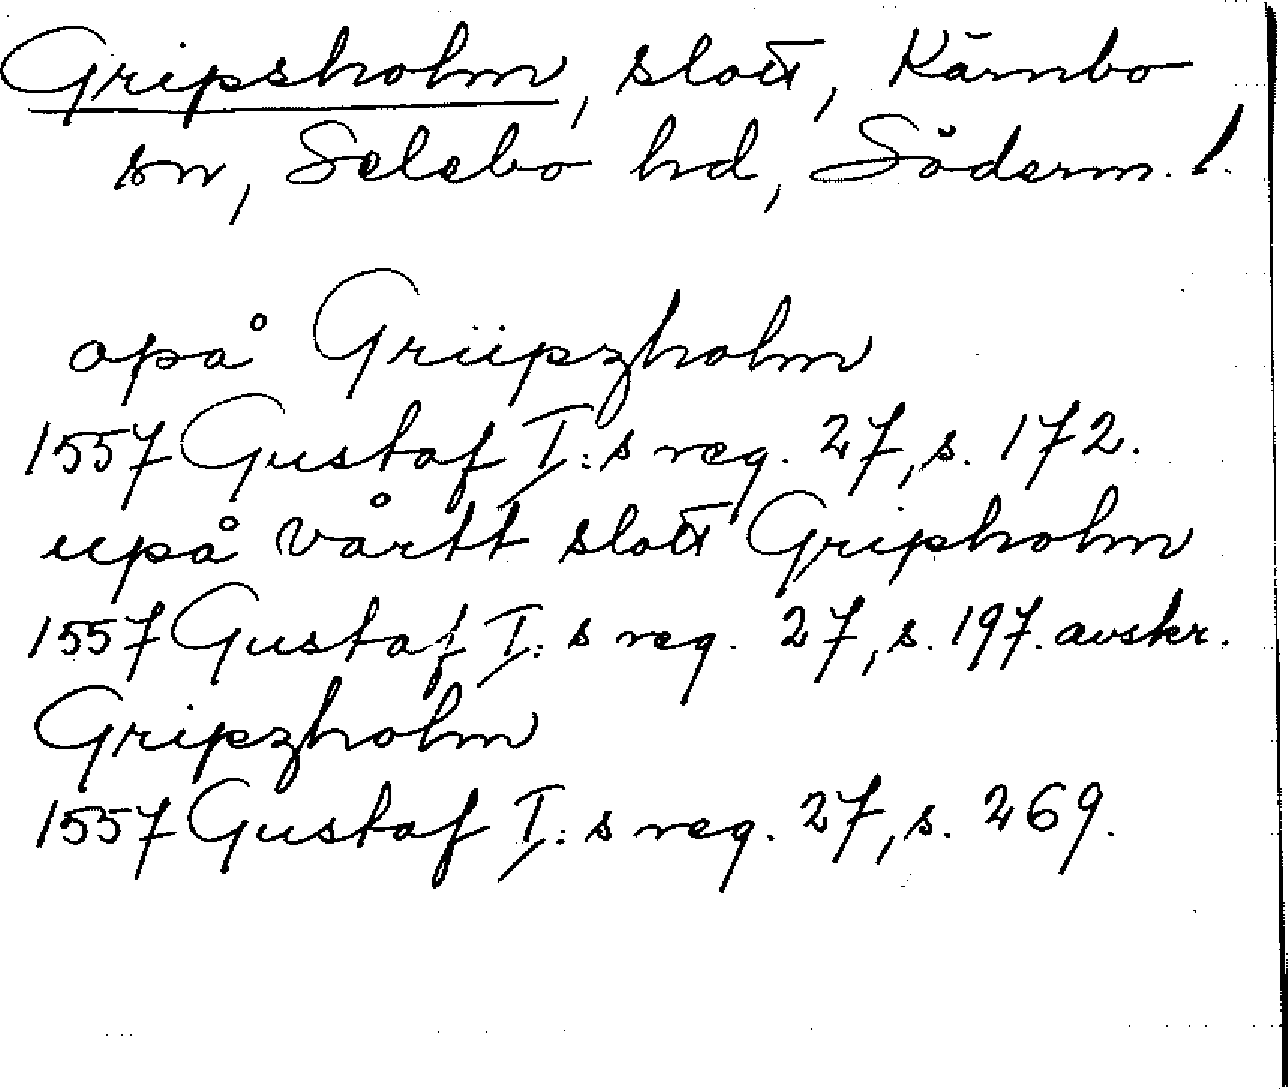 Gripsholm, slott, Kärnbo
sn, Selebo hd, Söderm. l.
opå Griipzholm
1557 Gustaf I:s reg. 27, s. 172.
upå vårtt slott Gripholm
1557 Gustaf I:s reg. 27, s. 197. avskr.
Gripzholm
1557 Gustaf I:s reg. 27, s. 269.